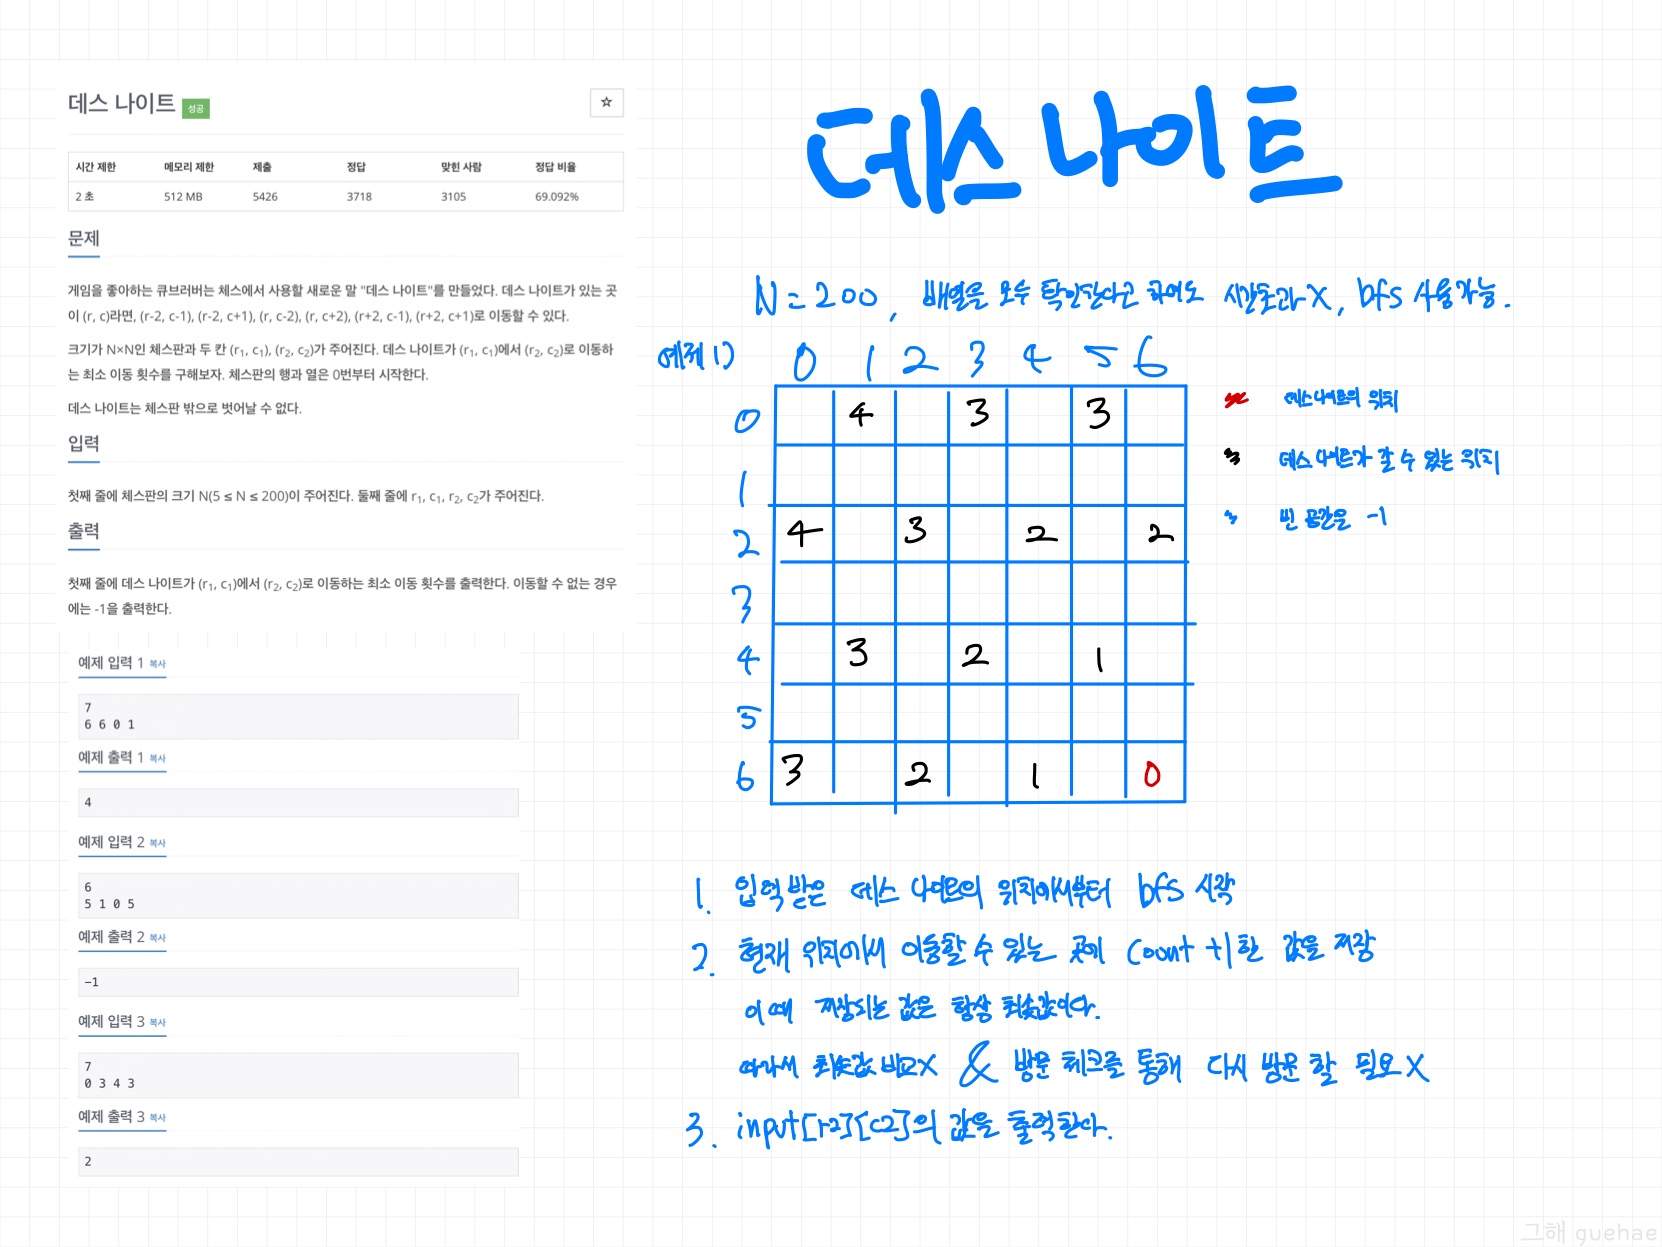 데스 나이트 성공
☆
시간 제한 메모리 제한 제출 정답 맞힌 사람 정답 비율
2 초 512 MB 5426 3718 3105 69.092%
문제
게임을 좋아하는 큐브러버는 체스에서 사용할 새로운 말 "데스 나이트"를 만들었다. 데스 나이트가 있는 곳
이 (r, c)라면, (r-2, c-1), (r-2, c+1), (r, c-2), (r, c+2), (r+2, c-1), (r+2, c+1)로 이동할 수 있다.
크기가 N×N인 체스판과 두 칸 (r₁, c₁), (r₂, c₂)가 주어진다. 데스 나이트가 (r₁, c₁)에서 (r₂, c₂)로 이동하
는 최소 이동 횟수를 구해보자. 체스판의 행과 열은 0번부터 시작한다.
데스 나이트는 체스판 밖으로 벗어날 수 없다.
입력
첫째 줄에 체스판의 크기 N(5 ≤ N ≤ 200)이 주어진다. 둘째 줄에 r₁, c₁, r₂, c₂가 주어진다.
출력
첫째 줄에 데스 나이트가 (r₁, c₁)에서 (r₂, c₂)로 이동하는 최소 이동 횟수를 출력한다. 이동할 수 없는 경우
에는 -1을 출력한다.
예제 입력 1 복사
7
6 6 0 1
예제 출력 1 복사
4
예제 입력 2 복사
6
5 1 0 5
예제 출력 2 복사
-1
예제 입력 3 복사
7
0 3 4 3
예제 출력 3 복사
2
데스 나이트
N=200, 배열을 모두 확인한다고 하여도 시간초과X, bfs 사용가능.
예제 1)
0 1 2 3 4 5 6
0 4 3 3
1
2 4 3 2 2
3
4 3 2 1
5
6 3 2 1 0
데스나이트의 위치
데스 나이트가 갈 수 있는 위치
빈 공간은 -1
1. 입력 받은 데스 나이트의 위치에서부터 bfs 시작
2. 현재 위치에서 이동할 수 있는 곳에 count +1 한 값을 저장
이 때 저장되는 값은 항상 최솟값이다.
따라서 최솟값 비교X & 방문 체크를 통해 다시 방문 할 필요X
3. input[r2][c2]의 값을 출력한다.
그해 guehae